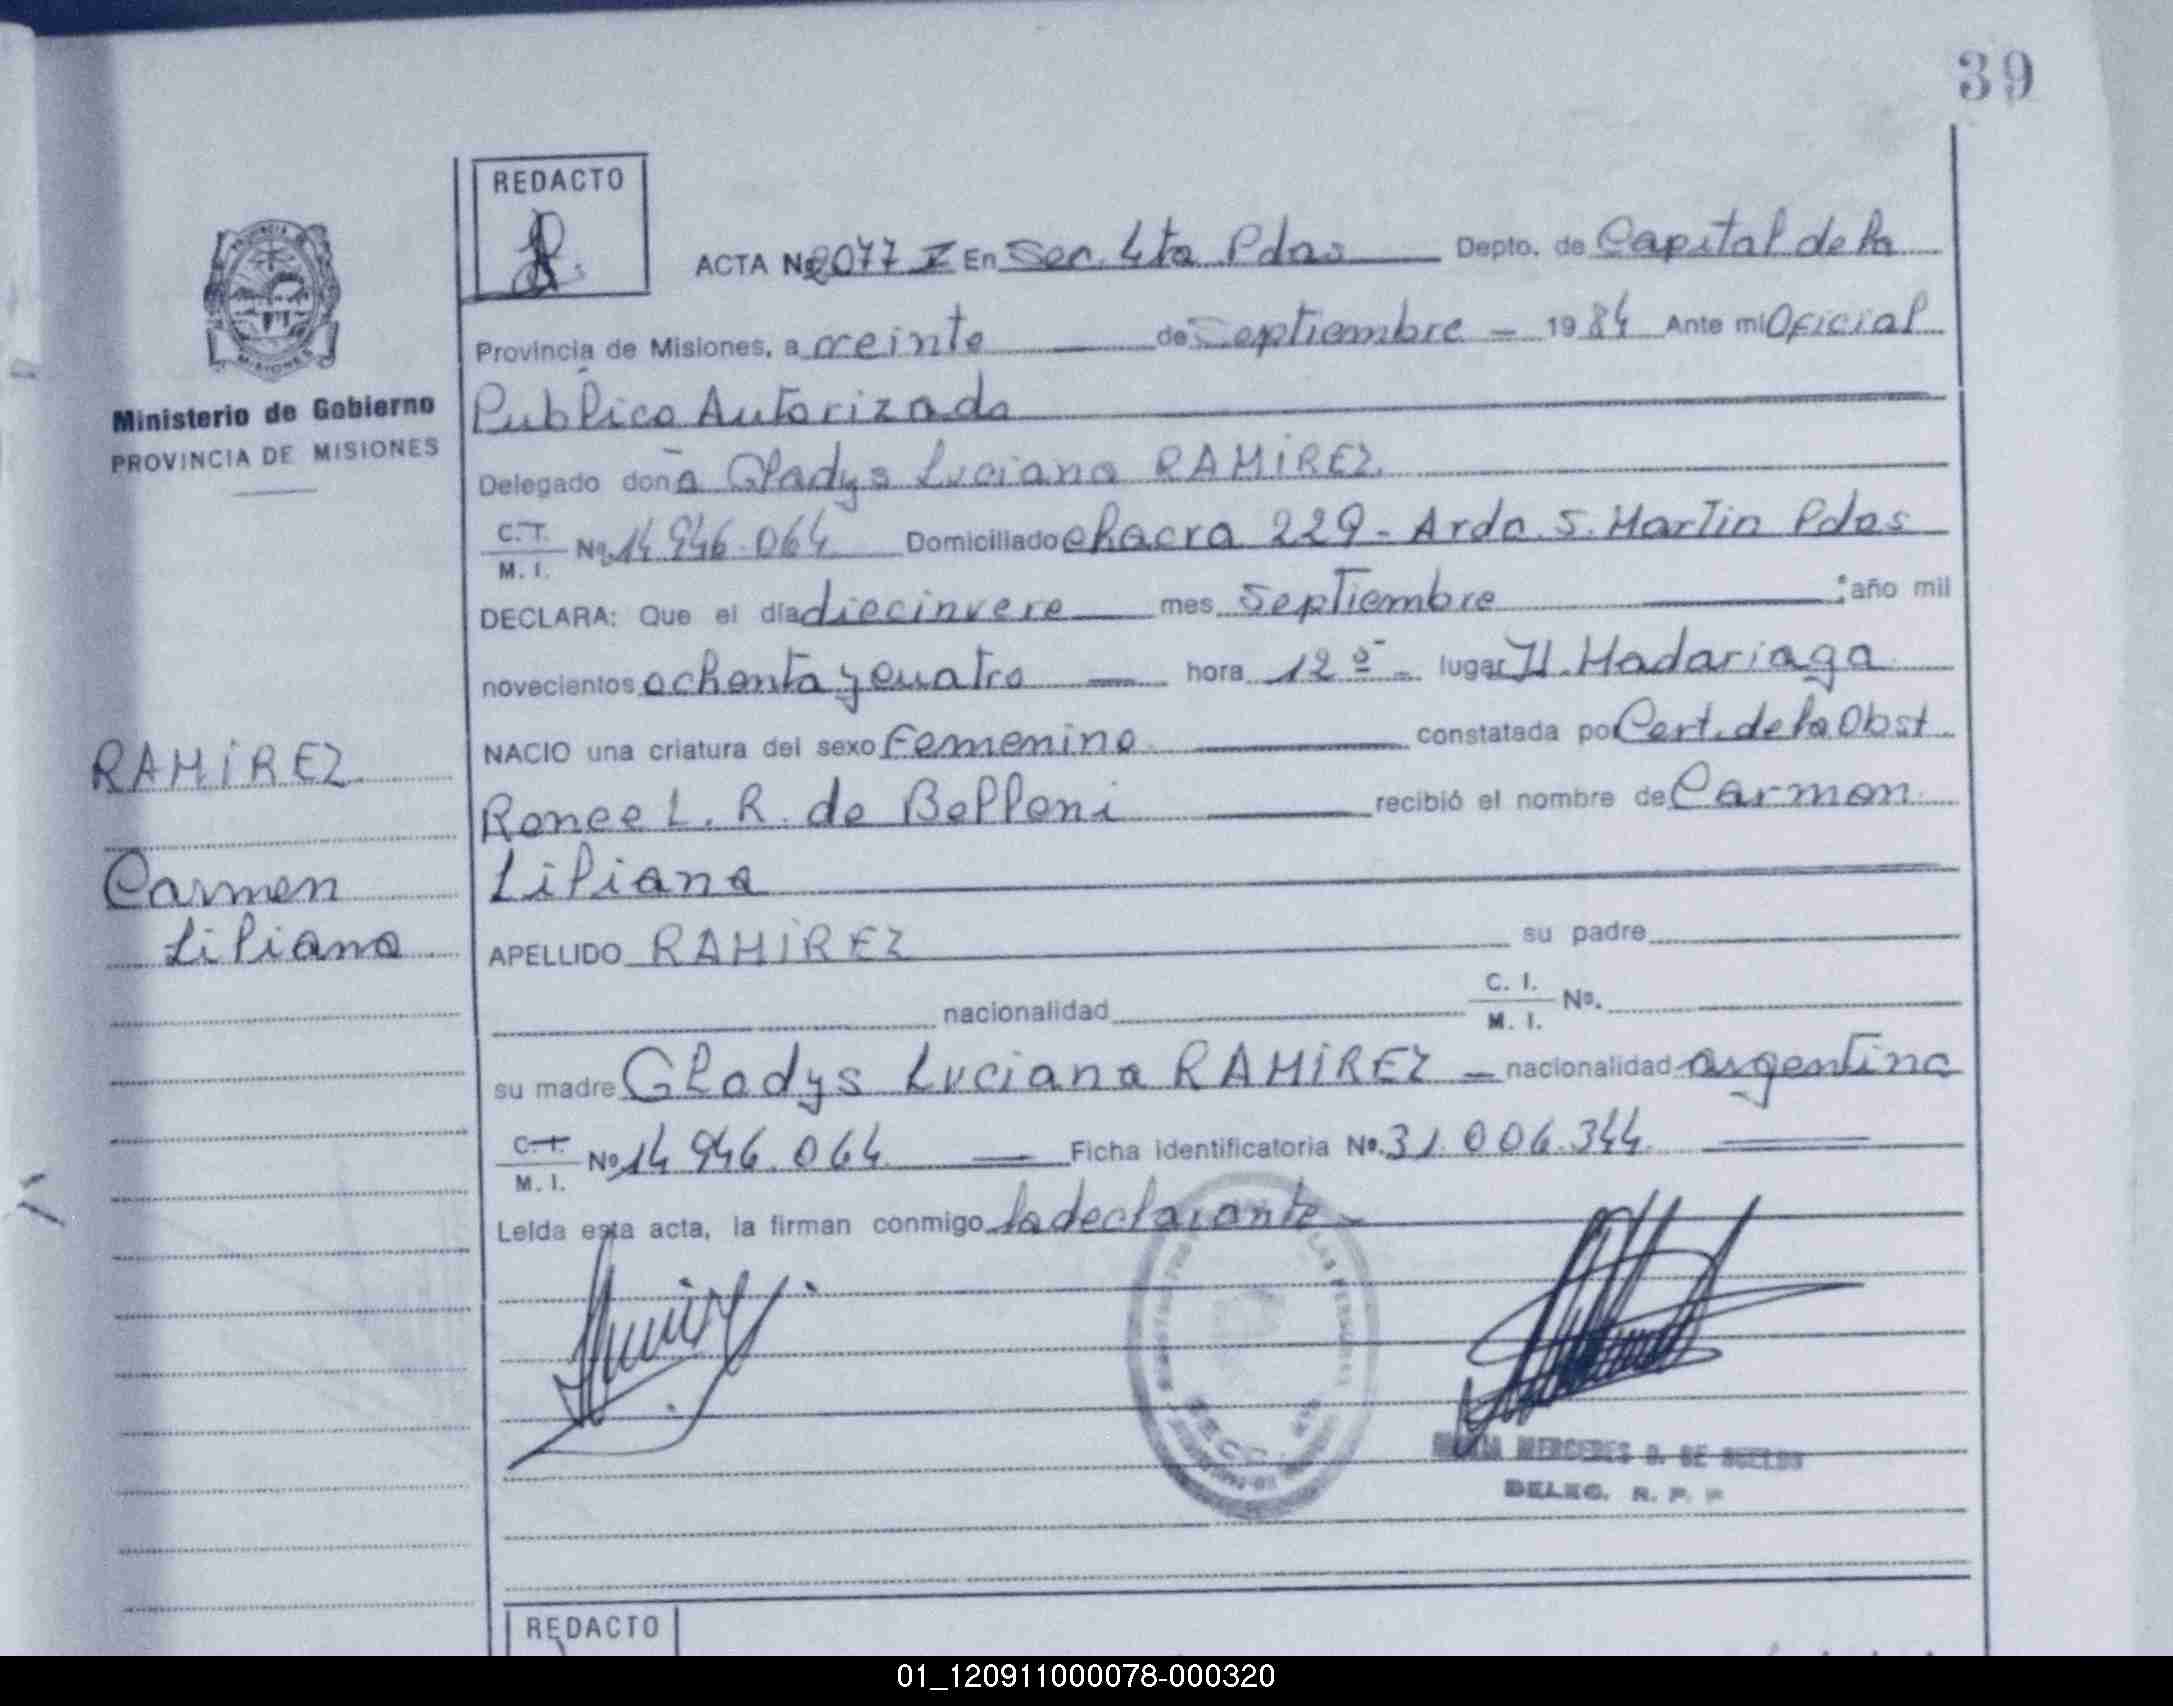 39
REDACTO
ACTA Nº 2077 I En Sec. 4ta Pdas Depto. de Capital de la
Provincia de Misiones, a veinte de Septiembre 1984 Ante mi Oficial
Publico Autorizado
Delegado doña Gladys Luciana RAMIREZ
C.I. M.I. Nº 14 946.064 Domiciliado chacra 229 - Arda. S. Martin Pdas
DECLARA: Que el día diecinueve mes Septiembre : año mil
novecientos ochenta y cuatro hora 12 º lugar H. Madariaga
NACIO una criatura del sexo Femenino constatada por Cert. de la Obst
Renee L. R. de Belloni recibió el nombre de Carmen
Liliana
APELLIDO RAMIREZ su padre
nacionalidad C. I. M. I. Nº.
su madre Gladys Luciana RAMIREZ nacionalidad argentina
C.I. M.I. Nº 14 946.064 Ficha identificatoria Nº. 31.006.344
Leída esta acta, la firman conmigo la declarante
MERCEDES
DELEG. R. P. P
Ministerio de Gobierno
PROVINCIA DE MISIONES
RAMIREZ
Carmen
Liliana
REDACTO
01_120911000078-000320